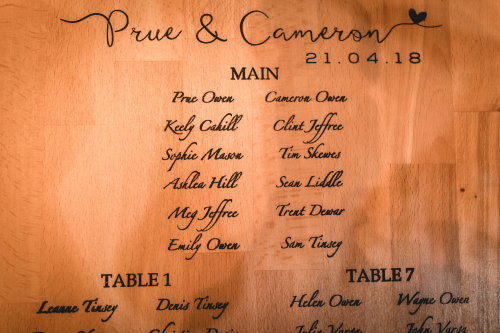 Prue & Cameron
21.04.18
MAIN
Prue Owen Cameron Owen
Keely Cahill Clint Jeffree
Sophie Mason Tim Skewes
Ashlea Hill Sean Liddle
Meg Jeffree Trent Dewar
Emily Owen Sam Tinsey
TABLE 1 TABLE 7
Leanne Tinsey Denis Tinsey Helen Owen Wayne Owen